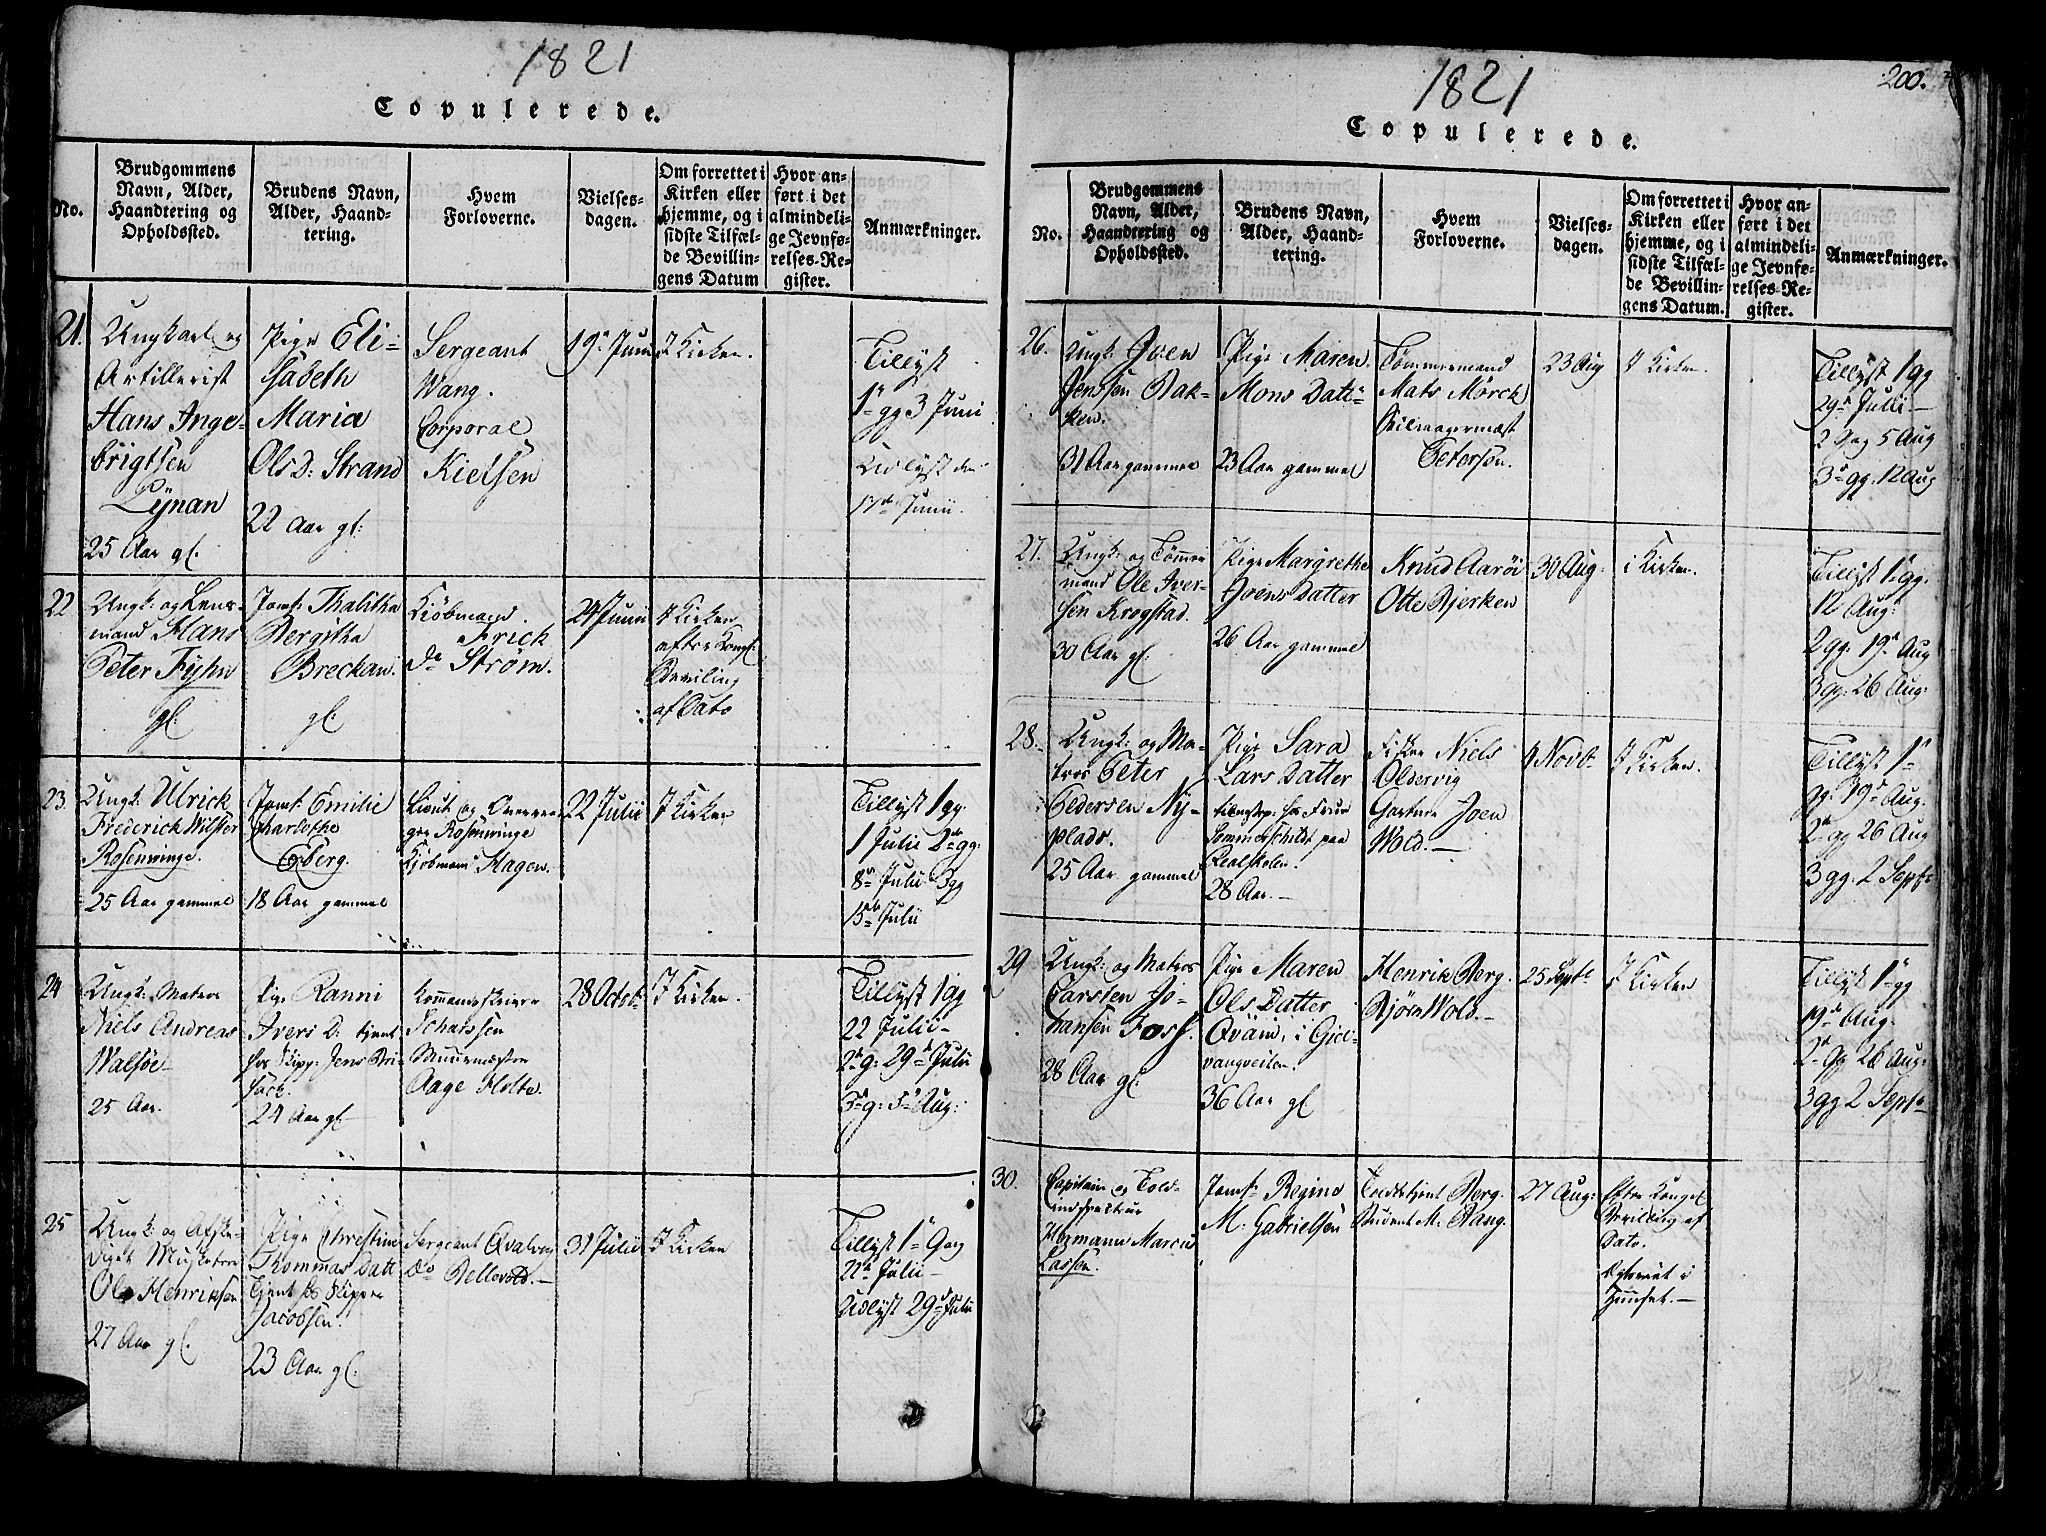 1821
Copulerede.
No.
Brudgommens
Navn, Alder,
Haandtering og
Opholdssted.
Brudens Navn,
Alder, Haand-
tering.
Hvem
Forloverne.
Vielses-
dagen.
Om forrettet i
Kirken eller
hjemme, og i
sidste Tilfæl-
de Bevillin-
gens Datum
Hvor an-
ført i det
almindeli-
ge Jevnfø-
relses-Re-
gister.
Anmærkninger.
21.
Ungkarl og
Artillerist
Hans Inge-
brigtsen
Lÿnan
25 Aar gl.
Pige Eli-
sabeth
Maria
Ols D: Strand
22 Aar gl:
Sergeant
Wang.
Corporal
Kielsen
19 Junii
I Kirken.
Tillyst
1 gg 3 Junii
Udlyst den
17de Junii.
22
Ungk: og Lens-
mand Hans
Peter Fyhn
gl:
Jomf: Thalitha
Bergitha
Breckan.
gl:
Kiøbmand
Frick
do Strøm.
24 Junii
I Kirken
efter Kongl:
Bevilling
af Dato
23.
Ungk: Ulrick
Frederick Wilster
Rosenvinge.
25 Aar gammel
Jomf: Emilie
Charlothe
Eberg.
18 Aar gammel
Rosenvinge
Kjøbmand Hagen.
22 Julii
I Kirken
Tillyst 1 gg.
1 Julii 2de gg:
8de Julii 3 gg
15de Julii
24
Ungk: Matros
Niels Andreas
Walsöe
25 Aar.
Pige Ranni
Ivers D. tjent
hos Skipp: Jens Bri-
sach.
24 Aar gl.
Scharssen
Muurmester
Aage Holte.
28 Octob:
I Kirken.
Tillyst 1 gg
22 Julii
2 g: 29 Julii
3 g: 5 Aug:
25
Ungk: og Afske-
diget Musketeer
Ole Henriksen
27 Aar gl.
Pige Christine
Thommas Datt
Tjent hos Skipper
Jacobsen.
23 Aar gl.
Sergeant Qvalvog
Do Bellevold.
31 Julii
I Kirken
Tillyst 1 Gag
22 Julii
Udlyst 29 Julii
1821
200.
Copulerede.
No.
Brudgommens
Navn, Alder,
Haandtering og
Opholdssted.
Brudens Navn,
Alder, Haand-
tering.
Hvem
Forloverne.
Vielses-
dagen.
Om forrettet i
Kirken eller
hjemme, og i
sidste Tilfæl-
de Bevillin-
gens Datum.
Hvor an-
ført i det
almindeli-
ge Jevnfø-
relses-Re-
gister.
Anmærkninger.
26.
Ungk: Joen
Jenssen Bak-
ken.
31 Aar gammel
Pige Maren
Mons Datt-
23 Aar gammel
Tømmermand
Mats Mørch
Petersen.
23 Aug
I Kirken.
Tillyst 1 gg
29 Julii
2 Gag 5 Aug
3 gg. 12 Aug
27.
Ungk: og Tømer
mand Ole Iver-
sen Krogstad.
30 Aar gl.
Pige Margrethe
Joens Datter
26 Aar gammel
Knud Aaröi
Otte Bjerken
30 Aug:
i Kirken.
Tillyst 1 gg.
12 Aug:
2 gg. 19 Aug
3 gg: 26 Aug:
28.
Ungk: og Ma-
tros Peter
Pedersen Ny-
plads.
25 Aar gammel
Pige Sara
Lars Datter
hos Frue
Sommerschildt paa
Realskolen.
28 Aar.
Fisker Niels
Oldervig
Gartner Joen
Wold.
4 Novb
I Kirken.
Tillyst 1
gg: 19 Aug.
2 gg 26 Aug
3 gg: 2 Sept
29
Ungk: og Matros
Carsten Jo-
hansen Foss.
28 Aar gl:
Pige Maren
Ols Datter
Qväni, i Gjel-
vangveiten.
36 Aar gl
Henrik Berg.
Bjørn Wold.
25 Sept
I Kirken
Tillyst 1 gg
19 Aug:
2 Gg 26 Aug:
3 gg 2 Sept
30.
Capitain og Told-
inspecteur
Hermann Marcus
Lassen.
Jomf: Regine
M. Gabrielsen
Toldbetjent Berg.
Student M. Bang.
27 Aug:
Efter Kongel
Bevilling af
Dato.
Copuleret i
Huuset.